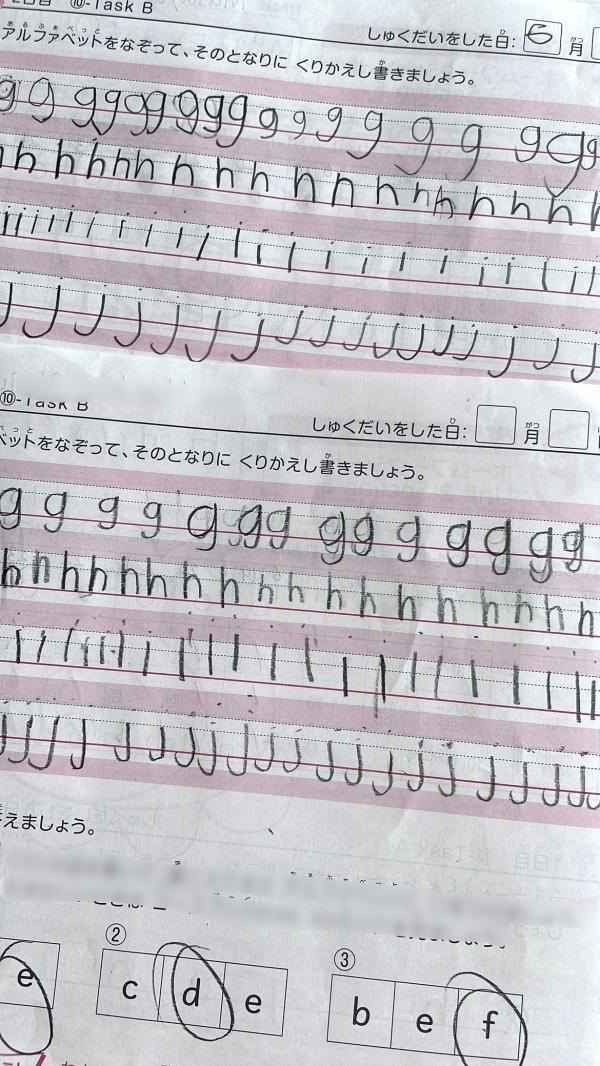 ⑩-Task B
しゅくだいをした日: 6 月
アルファベットをなぞって、そのとなりに くりかえし書きましょう。
g g g g g g g g g g g g g g g g g g
h h h h h h h h h h h h h h h h h h
i i i i i i i i i i i i i i i i i i i i
j j j j j j j j j j j j j j j j j j
⑩-Task B
しゅくだいをした日: 月
ベットをなぞって、そのとなりに くりかえし書きましょう。
g g g g g g g g g g g g g g
h h h h h h h h h h h h h h h h h
i i i i i i i i i i i i i i i i i i i
j j j j j j j j j j j j j j j j j j j j
えましょう。
② ③
e c d e b e f